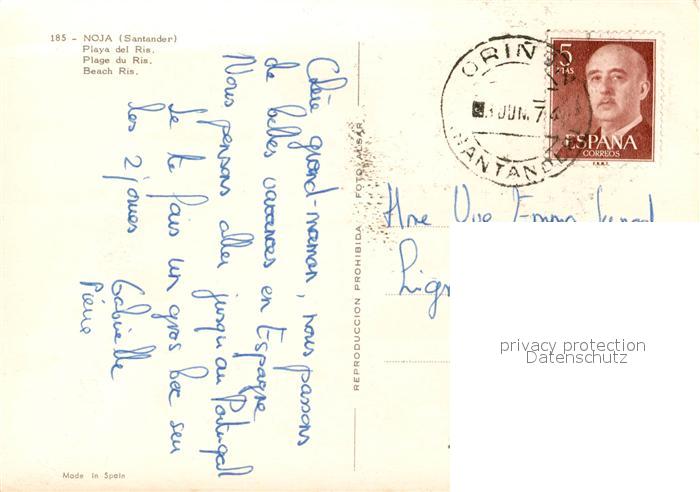 185 - NOJA (Santander)
Playa del Ris.
Plage du Ris.
Beach Ris.
Chère grand-maman, nous passons
de belles vacances en Espagne
Nous pensons aller jusqu'au Portugal
Je te fais un gros bec sur
les 2 joues
Gabrielle
Pierre
REPRODUCCION PROHIBIDA FOTO ALSAR
5
PTAS
ESPAÑA
CORREOS
F.N.M.T.
JUN.
SANTANDER
Vve Emma
privacy protection
Datenschutz
Made in Spain